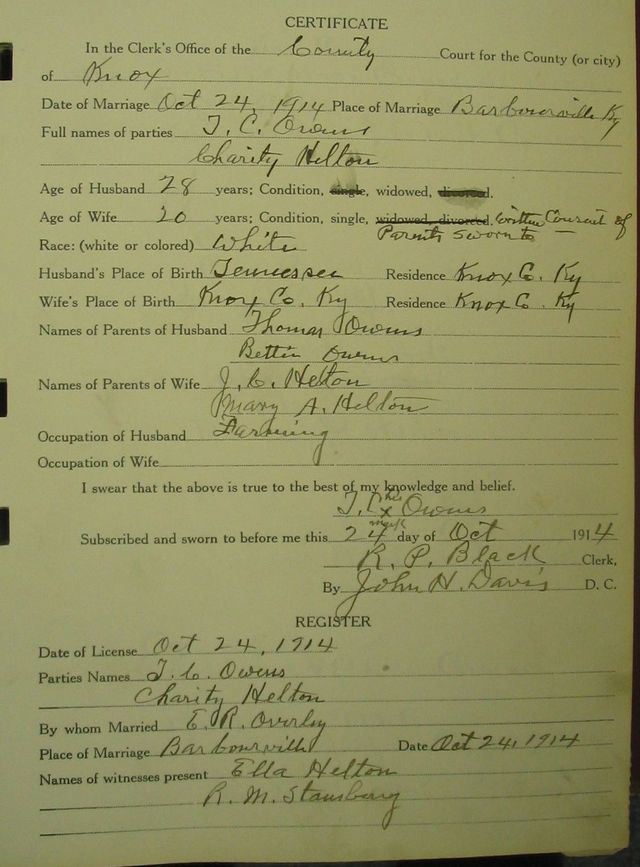 CERTIFICATE
In the Clerk's Office of the County Court for the County (or city)
of Knox
Date of Marriage Oct 24, 1914 Place of Marriage Barbourville Ky
Full names of parties T. C. Owens
Charity Helton
Age of Husband 28 years; Condition, single, widowed, divorced.
Age of Wife 20 years; Condition, single, widowed, divorced. Written Consent of
Parents Sworn to
Race: (white or colored) White
Husband's Place of Birth Tennessee Residence Knox Co. Ky
Wife's Place of Birth Knox Co. Ky Residence Knox Co. Ky
Names of Parents of Husband Thomas Owens
Bettie Owens
Names of Parents of Wife J. C. Helton
Mary A. Helton
Occupation of Husband Farming
Occupation of Wife
I swear that the above is true to the best of my knowledge and belief.
his
T. C. x Owens
mark
Subscribed and sworn to before me this 24 day of Oct 1914
R. P. Black Clerk,
By John H. Davis D. C.
REGISTER
Date of License Oct 24, 1914
Parties Names T. C. Owens
Charity Helton
By whom Married E. R. Overby
Place of Marriage Barbourville Date Oct 24, 1914
Names of witnesses present Ella Helton
R. M. Stansberry